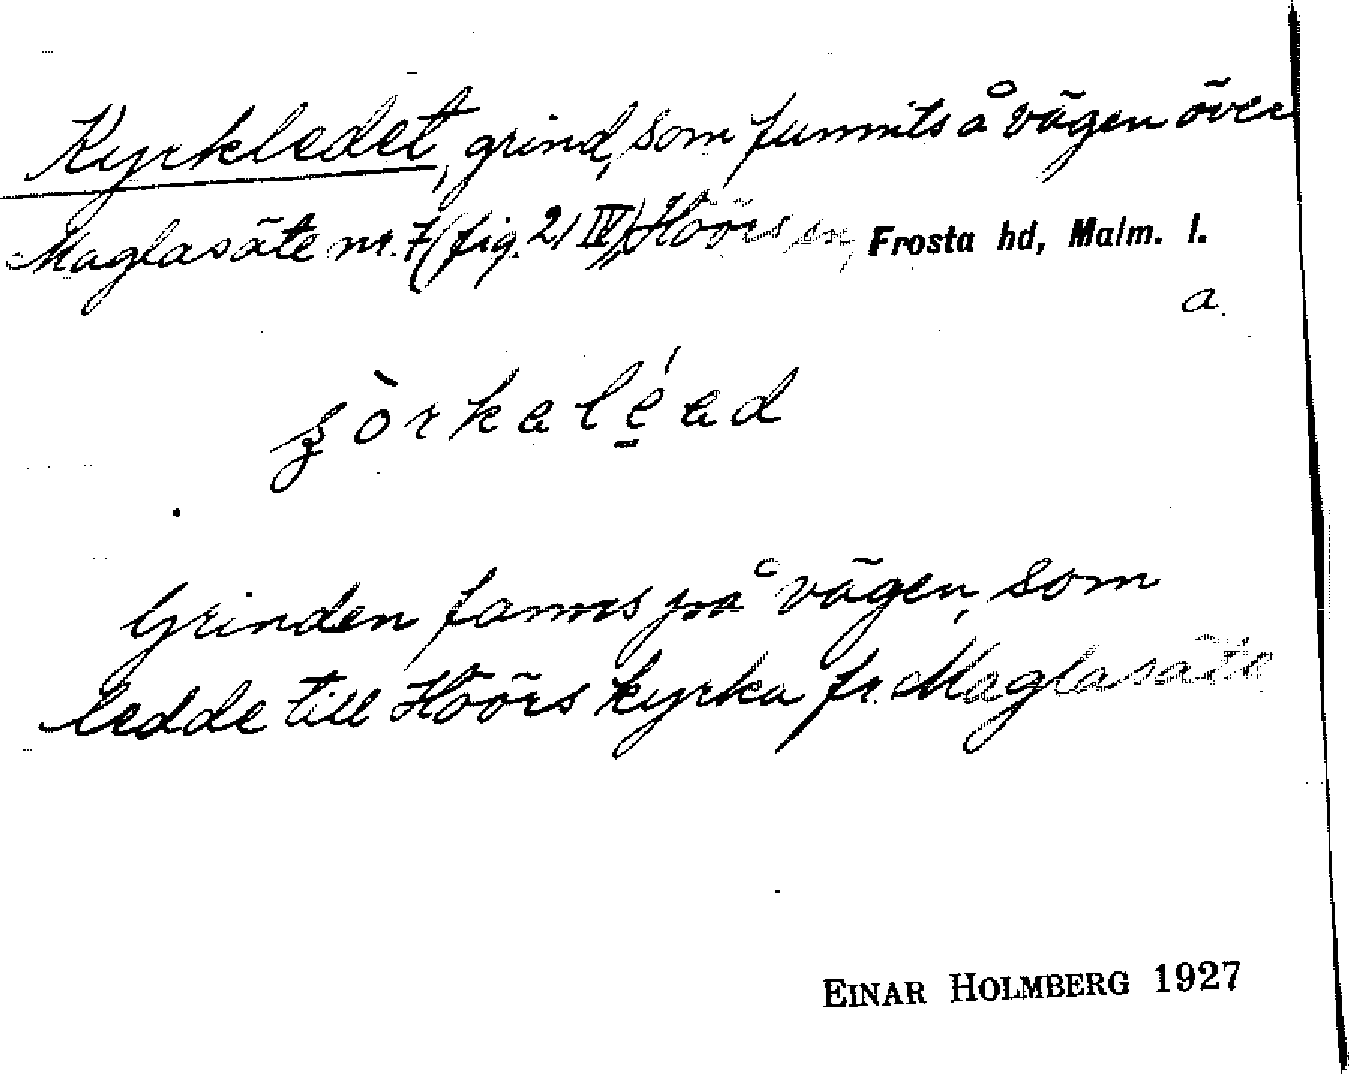 Kyrkledet, grind, som funnits å vägen över
Maglasäte nr. 7 (fig. 2, IV) Höörs sn, Frosta hd, Malm. l.
a.
Grinden fanns på vägen, som
ledde till Höörs kyrka fr. Maglasäte
EINAR HOLMBERG 1927